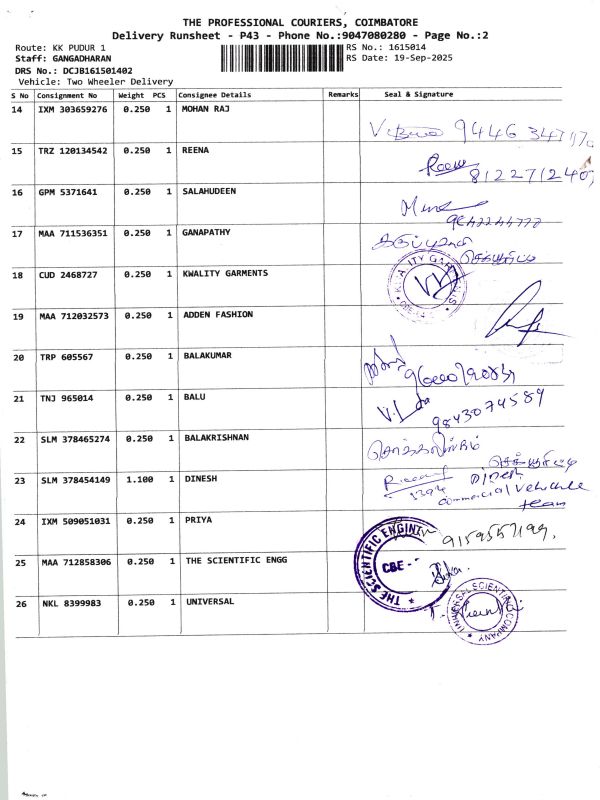 THE PROFESSIONAL COURIERS, COIMBATORE
Delivery Runsheet - P43 - Phone No.:9047080280 - Page No.:2
Route: KK PUDUR 1 RS No.: 1615014
Staff: GANGADHARAN RS Date: 19-Sep-2025
DRS No.: DCJB161501402
Vehicle: Two Wheeler Delivery
S No Consignment No Weight PCS Consignee Details Remarks Seal & Signature
14 IXM 303659276 0.250 1 MOHAN RAJ
15 TRZ 120134542 0.250 1 REENA
Reena 8122712407
16 GPM 5371641 0.250 1 SALAHUDEEN
17 MAA 711536351 0.250 1 GANAPATHY
18 CUD 2468727 0.250 1 KWALITY GARMENTS
19 MAA 712032573 0.250 1 ADDEN FASHION
20 TRP 605567 0.250 1 BALAKUMAR
21 TNJ 965014 0.250 1 BALU
9843074589
22 SLM 378465274 0.250 1 BALAKRISHNAN
23 SLM 378454149 1.100 1 DINESH
Dinesh
commercial vehicle
team
24 IXM 509051031 0.250 1 PRIYA
25 MAA 712858306 0.250 1 THE SCIENTIFIC ENGG
THE SCIENTIFIC ENGINE
CBE -
26 NKL 8399983 0.250 1 UNIVERSAL
UNIVERSAL SCIENTIFIC COMPANY